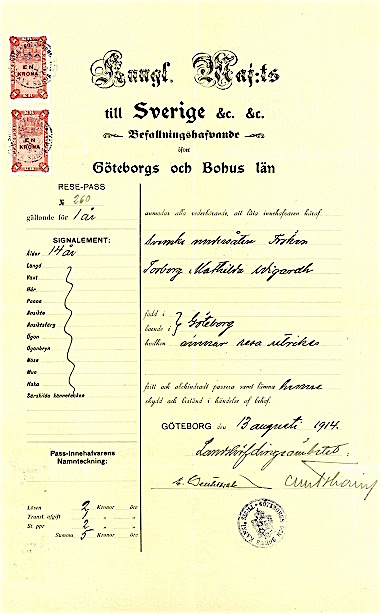 EN
KRONA
EN
KRONA
Kungl. Maj:ts
till Sverige &c. &c.
Befallningshafvande
öfver
Göteborgs och Bohus län
RESE-PASS
№ 260
gällande för 1 år
SIGNALEMENT:
Ålder 14 år
Längd
Växt
Hår
Panna
Ansikte
Ansiktsfärg
Ögon
Ögonbryn
Näsa
Mun
Haka
Särskilda kännetecken
Pass-innehafvarens
Namnteckning:
Lösen 2 Kronor öre
Transl. afgift 1 „ „
St ppr 2 „ „
Summa 5 Kronor öre
anmodar alla vederbörande, att låta innehafvaren häraf,
svenska undersåten Fröken
Torborg Mathilda Wigardh
född i
boende i } Göteborg
hvilken ämnar resa utrikes
fritt och obehindradt passera samt lämna henne
skydd och bistånd i händelse af behof.
GÖTEBORG den 13 augusti 1914.
Landshöfdingsämbetet